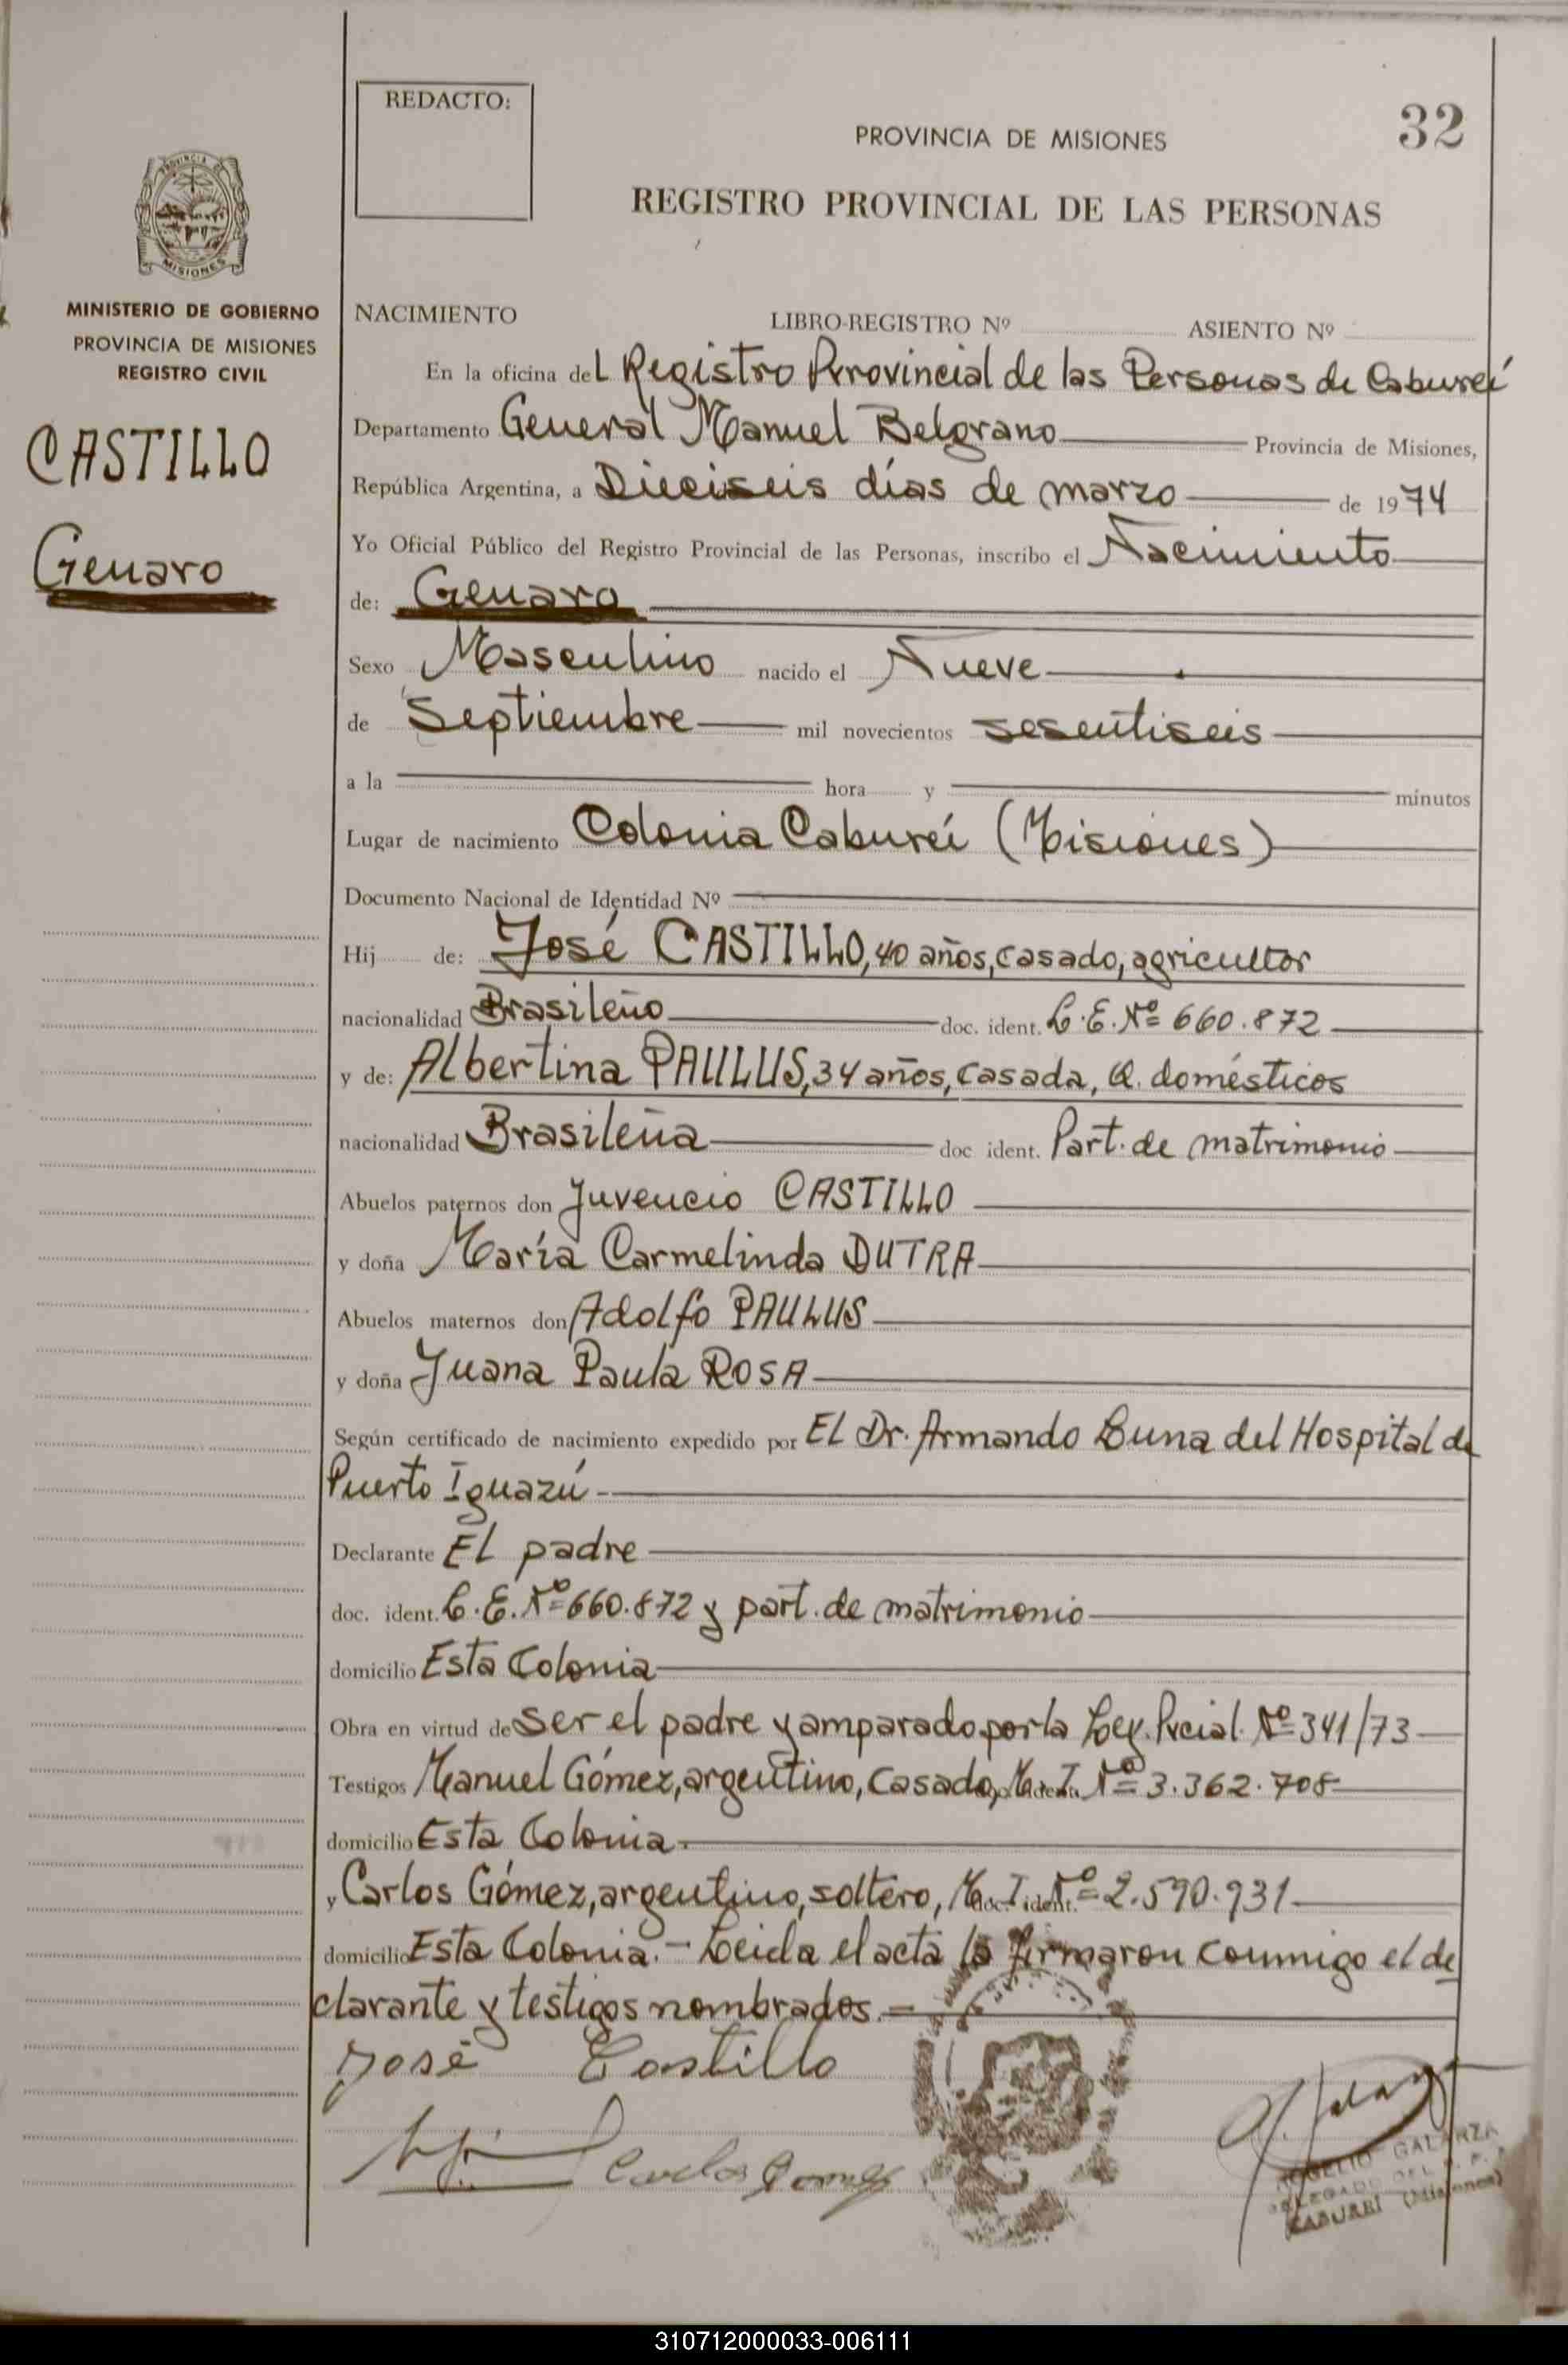 REDACTO:
32
PROVINCIA DE MISIONES
REGISTRO PROVINCIAL DE LAS PERSONAS
PROVINCIA
MISIONES
MINISTERIO DE GOBIERNO
PROVINCIA DE MISIONES
REGISTRO CIVIL
CASTILLO
Genaro
NACIMIENTO LIBRO-REGISTRO Nº ASIENTO Nº
En la oficina del Registro Provincial de las Personas de Cabureí
Departamento General Manuel Belgrano Provincia de Misiones,
República Argentina, a Dieciseis días de marzo de 1974
Yo Oficial Público del Registro Provincial de las Personas, inscribo el Nacimiento
de: Genaro
Sexo Masculino nacido el Nueve
de Septiembre mil novecientos sesentiseis
a la hora y minutos
Lugar de nacimiento Colonia Cabureí (Misiones)
Documento Nacional de Identidad Nº
Hij de: José CASTILLO, 40 años, casado, agricultor
nacionalidad Brasileño doc. ident. L.E. Nº 660.872
y de: Albertina PAULUS, 34 años, casada, Q. domésticos
nacionalidad Brasileña doc ident. Part. de matrimonio
Abuelos paternos don Juvencio CASTILLO
y doña María Carmelinda DUTRA
Abuelos maternos don Adolfo PAULUS
y doña Juana Paula ROSA
Según certificado de nacimiento expedido por El Dr. Armando Luna del Hospital de
Puerto Iguazú
Declarante El padre
doc. ident. L.E. Nº 660.872 y part. de matrimonio
domicilio Esta Colonia
Obra en virtud de Ser el padre y amparado por la Ley. Prcial. Nº 341/73
Testigos Manuel Gómez, argentino, casado, M. I. Nº 3.362.708
domicilio Esta Colonia.
y Carlos Gómez, argentino, soltero, M. I. Nº 2.590.931
domicilio Esta Colonia.- Leida el acta la firmaron conmigo el de
clarante y testigos nombrados.-
José Castillo
Carlos Gomez
ROGELIO GALARZA
DELEGADO DEL R. P. P.
CABUREI (Misiones)
310712000033-006111